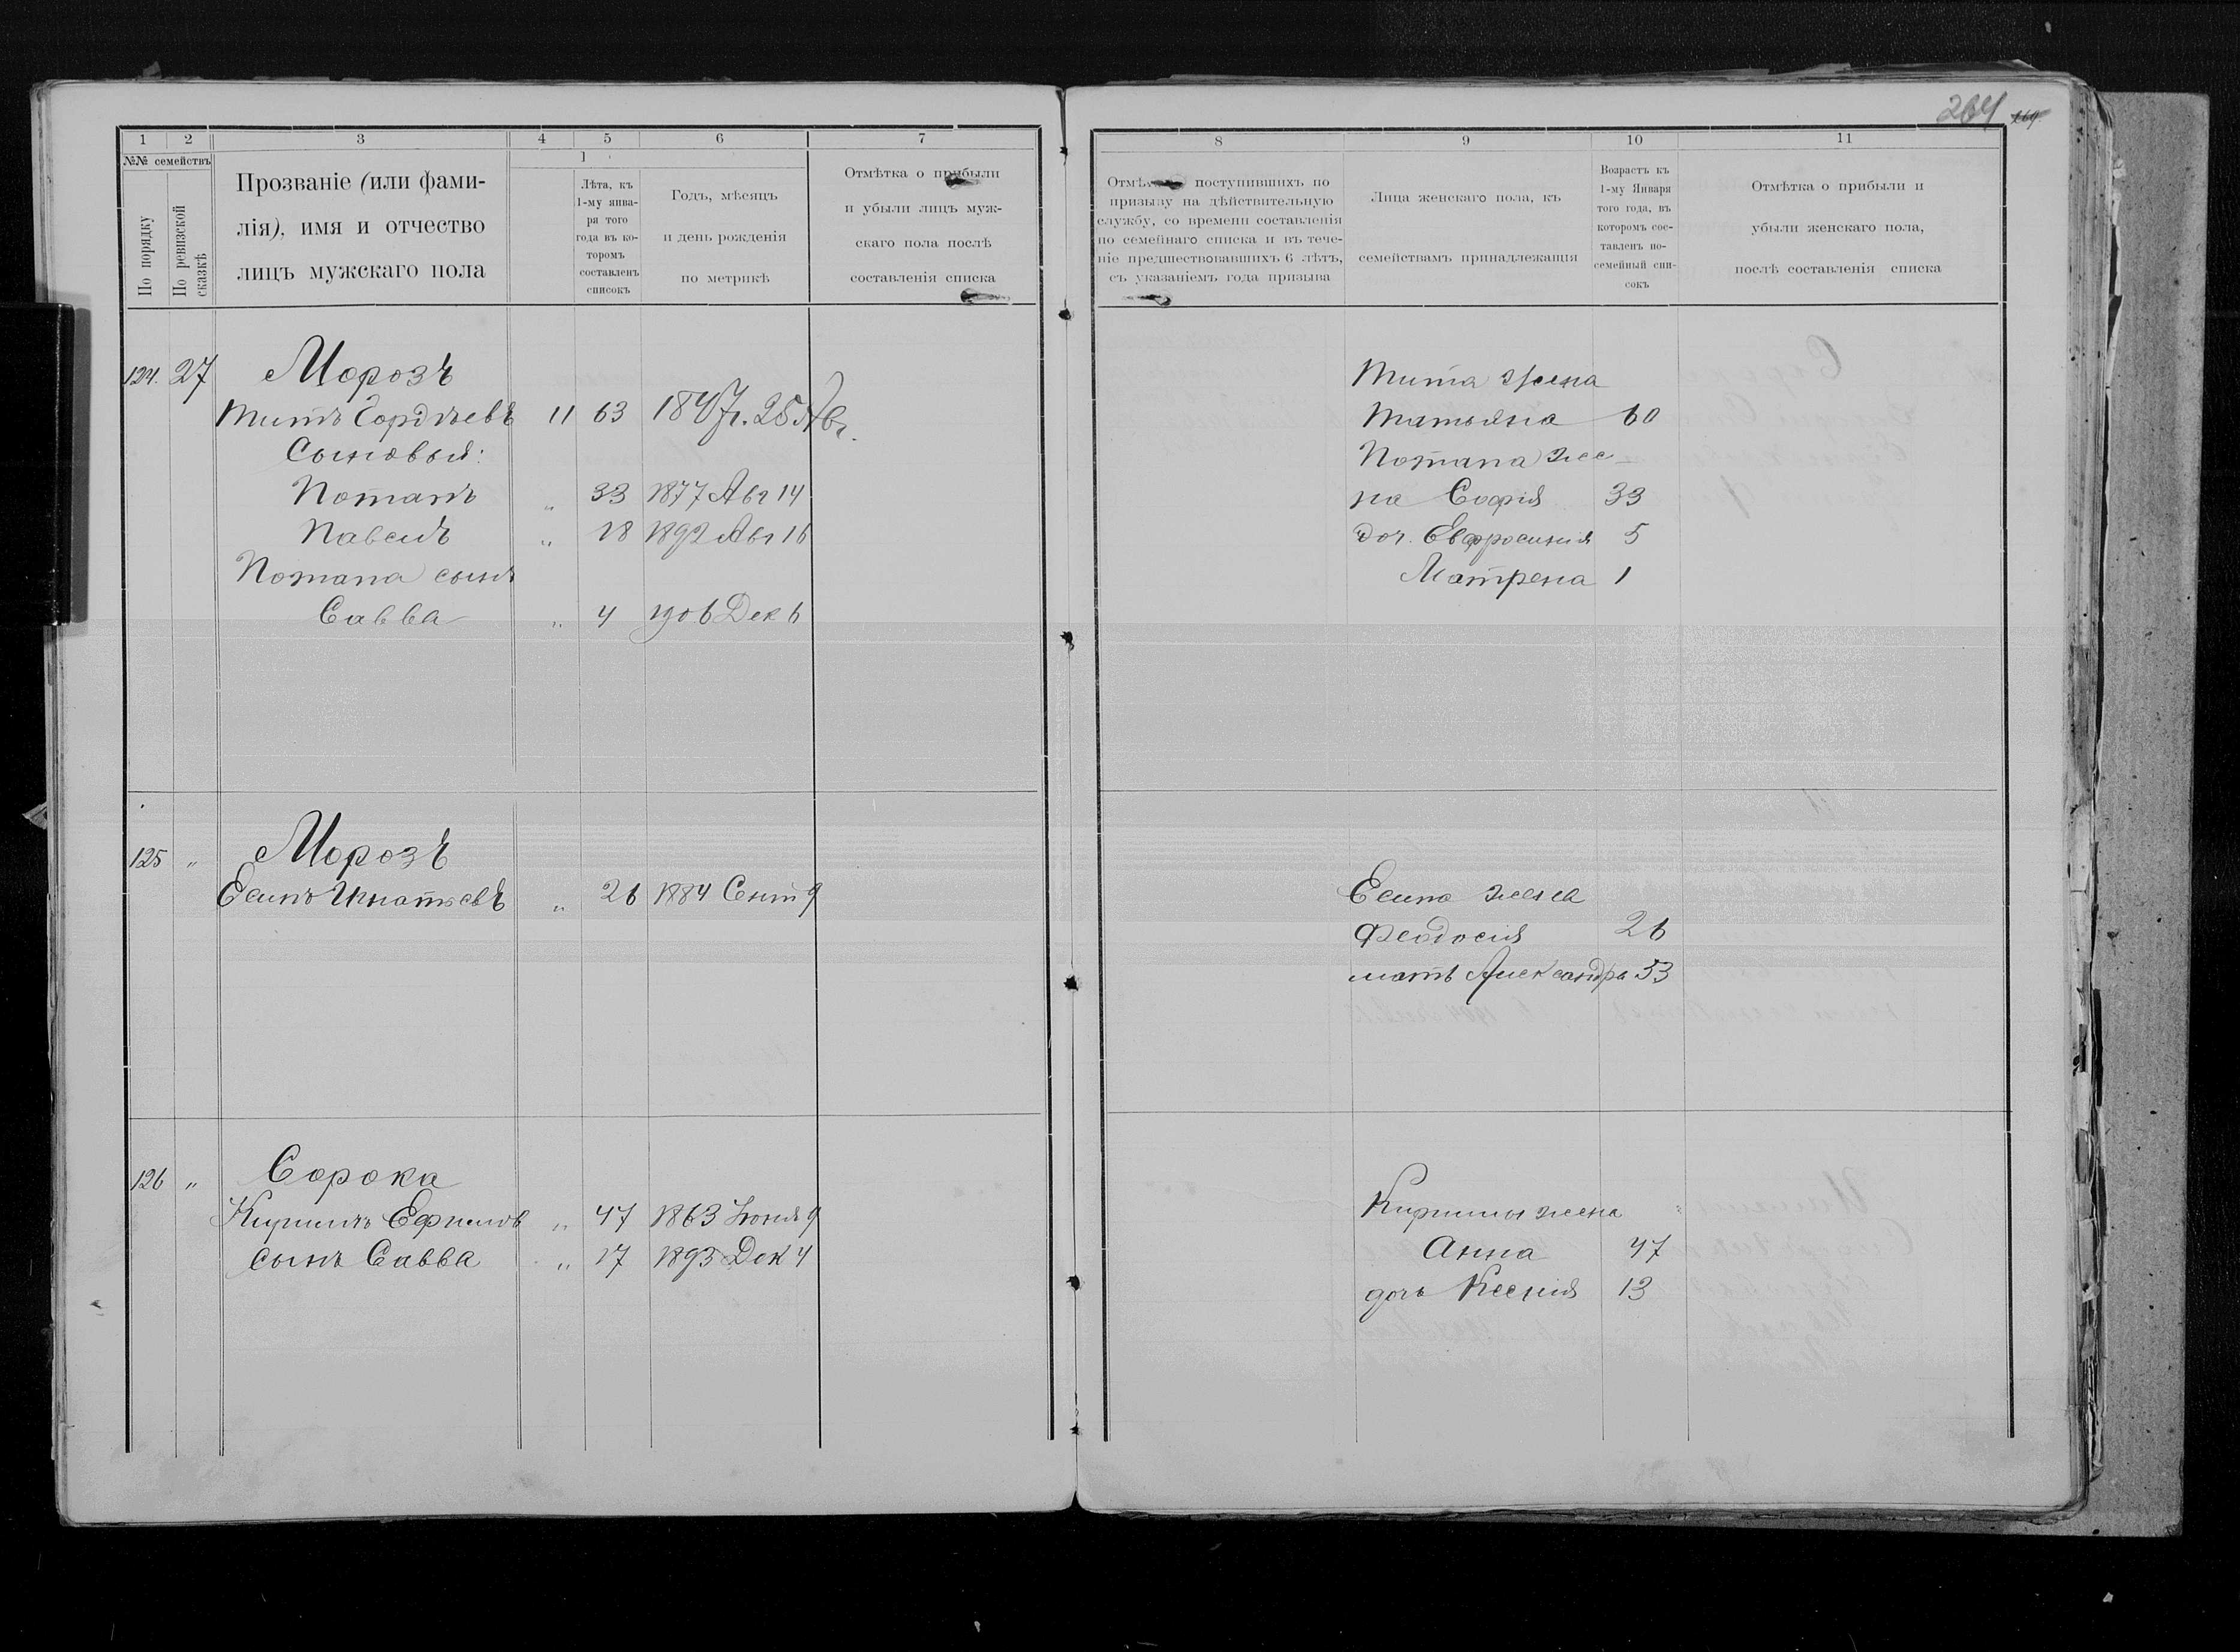 264 169
1 2 3 4 5 6 7
№№ семействъ
По порядку
По ревизской сказкѣ
Прозваніе (или фами-
лія), имя и отчество
лицъ мужскаго пола
1
Лѣта, къ
1-му янва-
ря того
года въ ко-
торомъ
составленъ
списокъ
Годъ, мѣсяцъ
и день рожденія
по метрикѣ
Отмѣтка о прибыли
и убыли лицъ муж-
скаго пола послѣ
составленія списка
124. 27 Морозъ
Титъ Гордѣевъ 11 63 1847г. 25 Авг.
Сыновья:
Потапъ „ 33 1877 Авг 14
Павелъ „ 18 1892 Авг 16
Потапа сынъ
Савва „ 4 1906 Дек 6
125 „ Морозъ
Есипъ Игнатьевъ „ 26 1884 Сент 9
126 „ Сорока
Кирилъ Ефимов „ 47 1863 Іюня 9
сынъ Савва „ 17 1893 Дек 4
8 9 10 11
поступившихъ по
призыву на дѣйствительную
службу, со времени составленія
по семейнаго списка и въ тече-
ніе предшествовавшихъ 6 лѣтъ,
съ указаніемъ года призыва
Лица женскаго пола, къ
семействамъ принадлежащія
Возрастъ къ
1-му Января
того года, въ
которомъ сос-
тавленъ по-
семейный спи-
сокъ
Отмѣтка о прибыли и
убыли женскаго пола,
послѣ составленія списка
Тита жена
Татьяна 60
Потапа же-
на Софія 33
доч. Евфросинія 5
Матрена 1
Есипа жена
Феодосія 26
мать Александра 53
Кирилы жена
Анна 47
дочь Ксенія 13